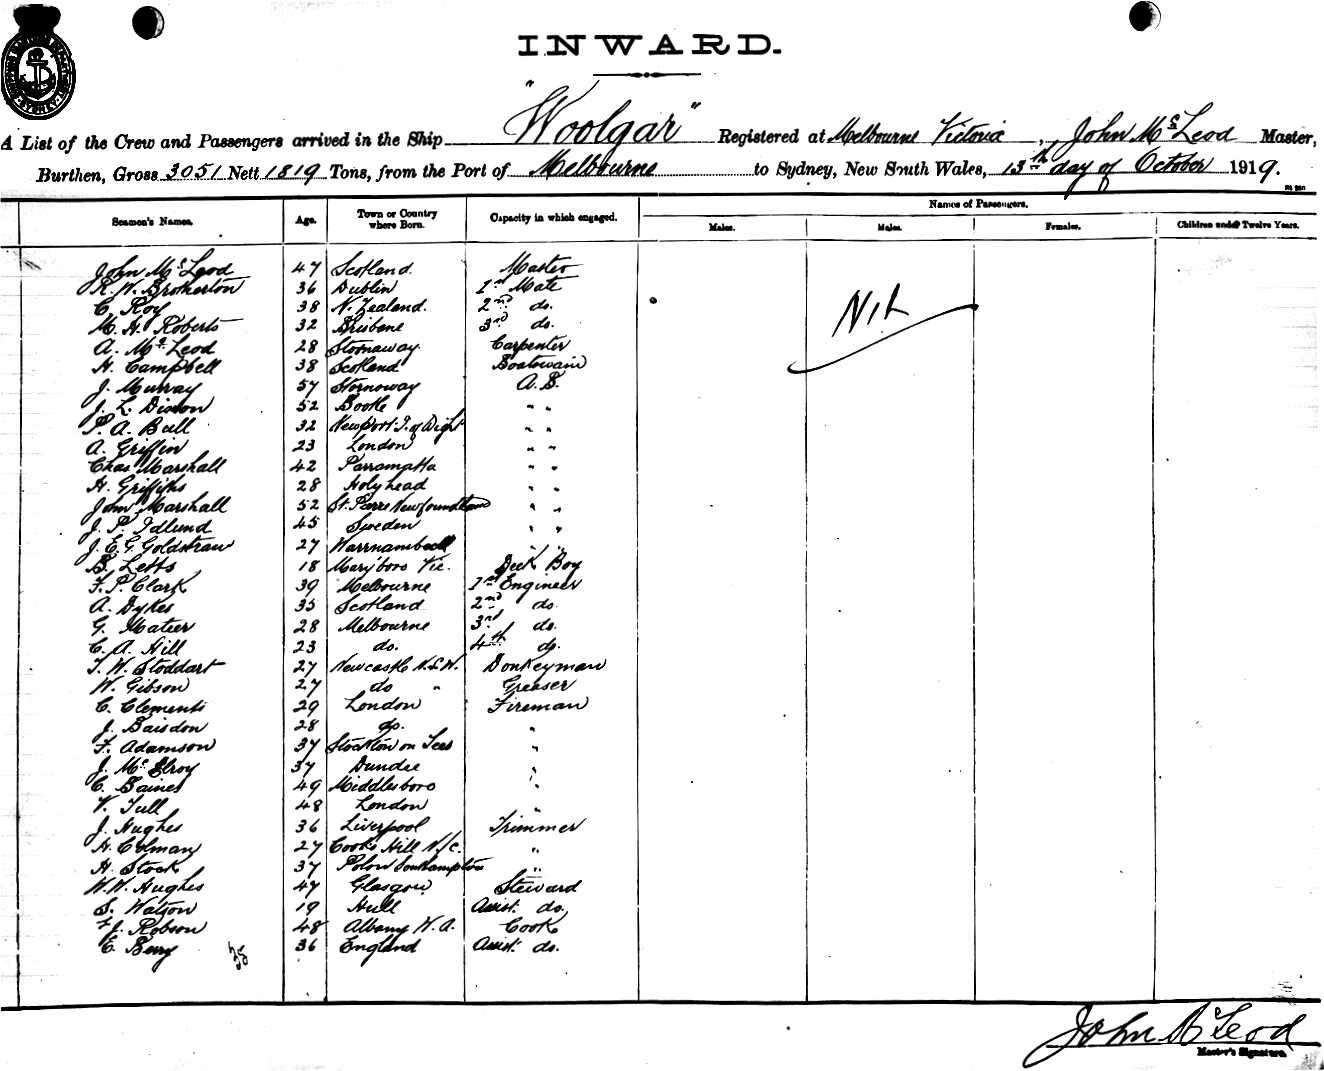 INWARD.
A List of the Crew and Passengers arrived in the Ship "Woolgar" Registered at Melbourne Victoria, John McLeod Master,
Burthen, Gross 3051 Nett 1819 Tons, from the Port of Melbourne to Sydney, New South Wales, 13th day of October 1919.
Names of Passengers.
Seamen's Names. Age. Town or Country where Born. Capacity in which engaged. Males. Males. Females. Children under Twelve Years.
John McLeod 47 Scotland. Master
R. W. Brotherton 36 Dublin 1st Mate
C. Roy 38 N. Zealand. 2nd do. Nil
M. H. Roberts 32 Brisbane 3rd do.
A. McLeod 28 Stornaway. Carpenter
H. Campbell 38 Scotland Boatswain
J. Murray 57 Stornoway A.B.
J. L. Dixon 52 Bootle " "
P. A. Bull 32 Newport I. of Wight " "
A. Griffin 23 London " "
Chas Marshall 42 Parramatta " "
H. Griffiths 28 Holyhead " "
John Marshall 52 St. Parrs Newfoundland " "
J. P. Idlund 45 Sweden " "
J. E. G. Goldstraw 27 Warrnambool " "
B. Letts 18 Mary'boro Vic. Deck Boy
F. P. Clark 39 Melbourne 1st Engineer
A. Dykes 35 Scotland 2nd do.
G. Mateer 28 Melbourne 3rd do.
C. A. Hill 23 do. 4th do.
T. W. Stoddart 27 Newcastle N.S.W. Donkeyman
W. Gibson 27 do " Greaser
C. Clements 29 London Fireman
J. Baisdon 28 do. "
F. Adamson 37 Stockton on Tees "
J. McElroy 37 Dundee "
C. Baines 49 Middlesboro "
V. Tull 48 London "
J. Hughes 36 Liverpool Trimmer
H. Colman 27 Cooks Hill N/C. "
H. Stock 37 Southampton "
W. W. Hughes 47 Glasgow Steward
S. Watson 19 Hull Assist. do.
J. Robson 48 Albany W.A. Cook
E. Berry 36 England Assist. do.
John McLeod
Master's Signature.